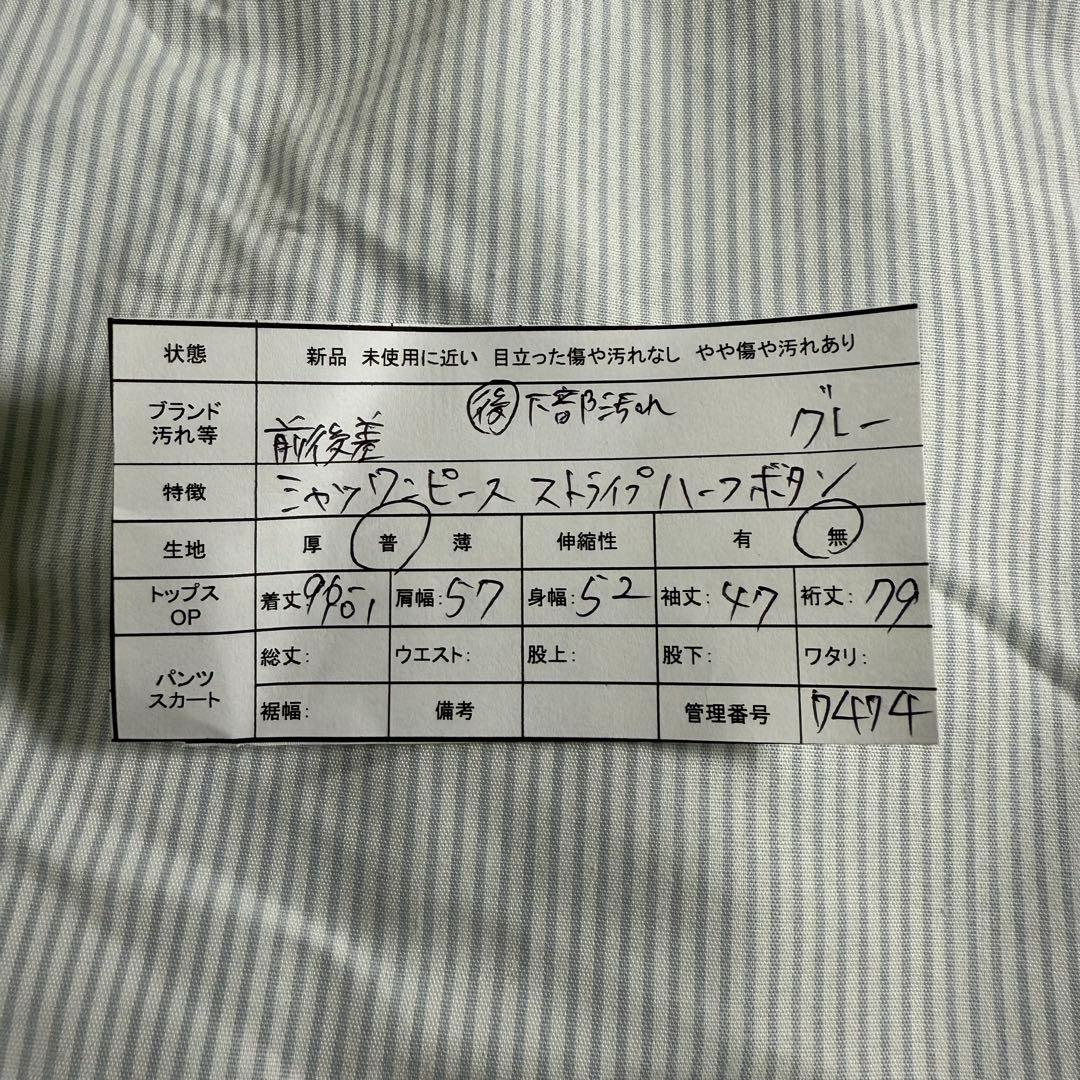 状態 新品 未使用に近い 目立った傷や汚れなし やや傷や汚れあり
ブランド 汚れ等 前後差 後 下部汚れ グレー
特徴 シャツワンピース ストライプ ハーフボタン
生地 厚 普 薄 伸縮性 有 無
トップス OP 着丈: 肩幅:57 身幅:52 袖丈:47 裄丈:79
パンツ スカート 総丈: ウエスト: 股上: 股下: ワタリ:
裾幅: 備考 管理番号 7474